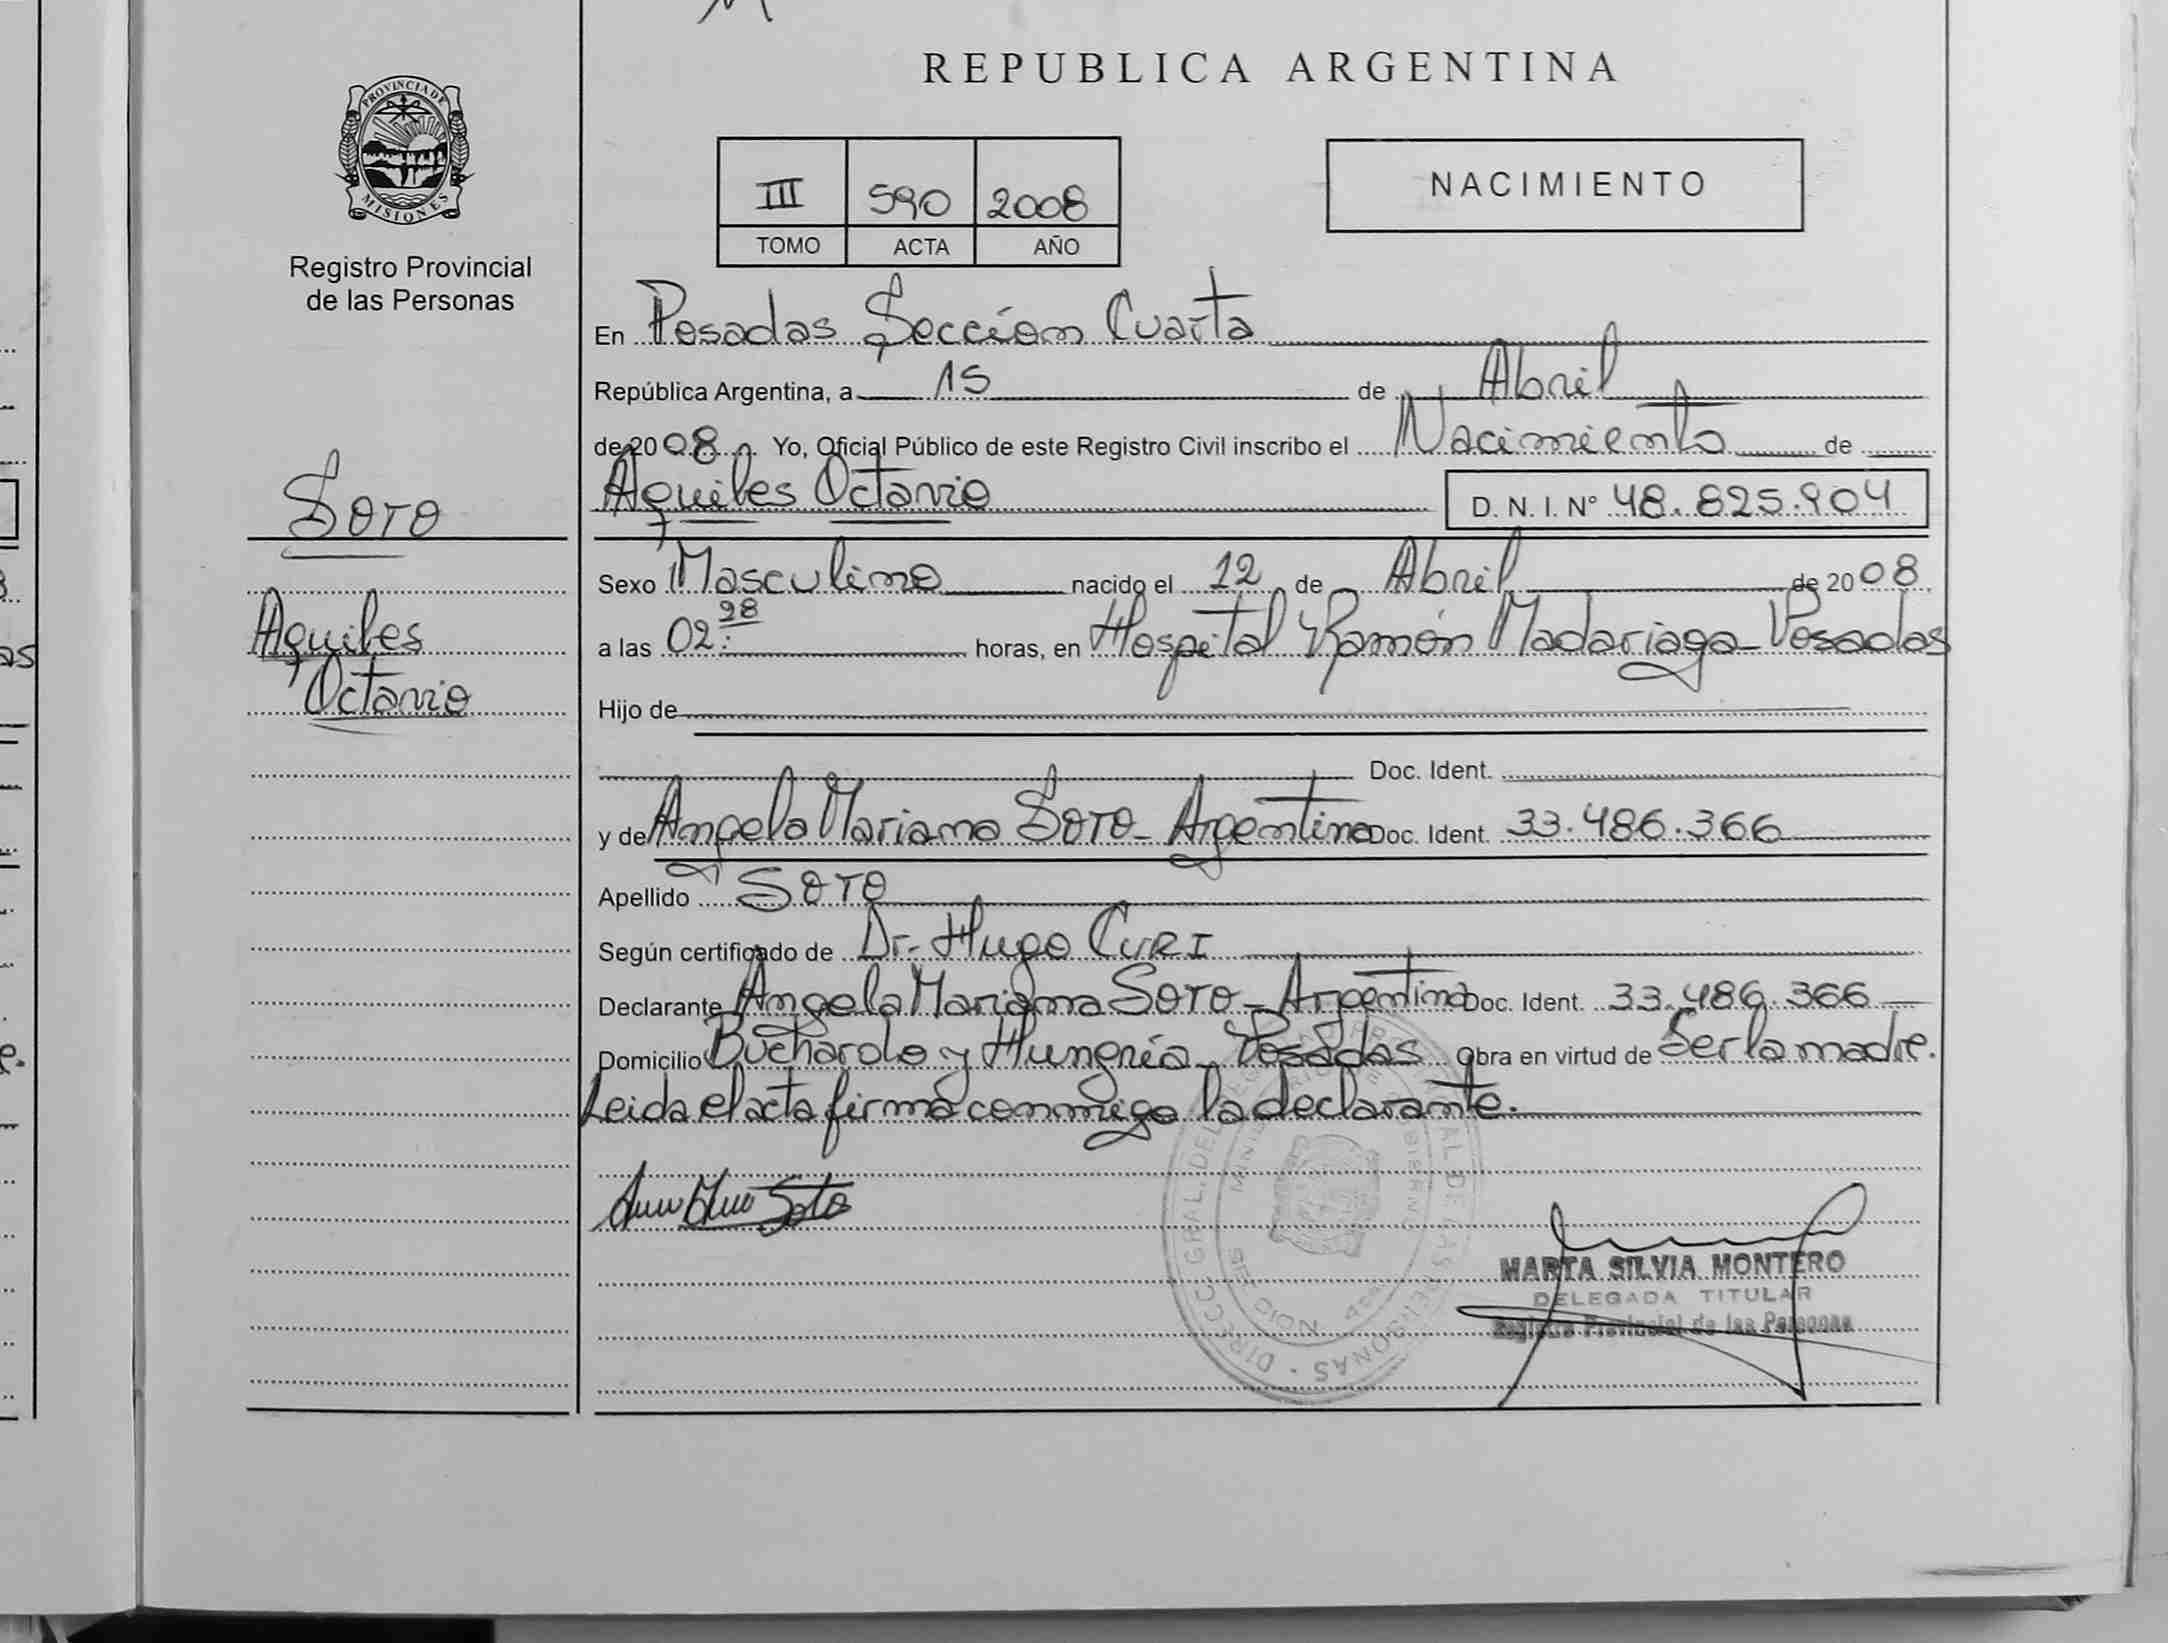 REPUBLICA ARGENTINA
PROVINCIA DE
MISIONES
Registro Provincial
de las Personas
III 590 2008
TOMO ACTA AÑO
NACIMIENTO
En Posadas Sección Cuarta
República Argentina, a 15 de Abril
de 2008 Yo, Oficial Público de este Registro Civil inscribo el Nacimiento de
Aquiles Octavio D. N. I. Nº 48.825.904
Soto
Aquiles
Octavio
Sexo Masculino nacido el 12 de Abril de 2008
a las 02: horas, en Hospital Ramón Madariaga - Posadas
Hijo de
Doc. Ident.
y de Angela Mariana Soto - Argentina Doc. Ident. 33.486.366
Apellido SOTO
Según certificado de Dr. Hugo CURI
Declarante Angela Mariana SOTO - Argentina Doc. Ident. 33.486.366
Domicilio Buchardo y Hungría - Posadas Obra en virtud de Ser la madre.
Leida el acta firma conmigo la declarante.
Soto
MARTA SILVIA MONTERO
DELEGADA TITULAR
Registro Provincial de las Personas